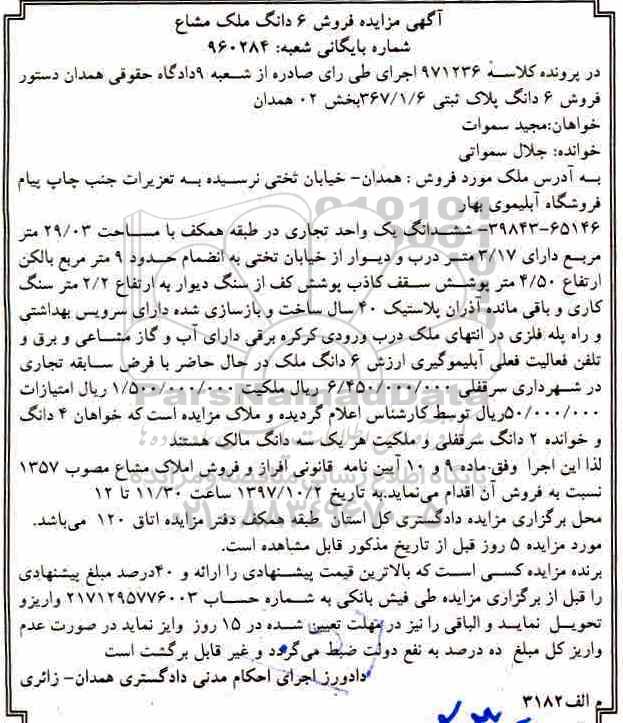 آگهی مزایده فروش ۶ دانگ ملک مشاع
شماره بایگانی شعبه: ۹۶۰۲۸۴
در پرونده کلاسۀ ۹۷۱۲۳۶ اجرای طی رای صادره از شعبه ۹دادگاه حقوقی همدان دستور
فروش ۶ دانگ پلاک ثبتی ۳۶۷/۱/۶بخش ۰۲ همدان
خواهان:مجید سموات
خوانده: جلال سمواتی
به آدرس ملک مورد فروش : همدان- خیابان تختی نرسیده به تعزیرات جنب چاپ پیام
فروشگاه آبلیموی بهار
۳۹۸۴۳-۶۵۱۴۶- ششدانگ یک واحد تجاری در طبقه همکف با مساحت ۲۹/۰۳ متر
مربع دارای ۳/۱۷ متر درب و دیوار از خیابان تختی به انضمام حدود ۹ متر مربع بالکن
ارتفاع ۴/۵۰ متر پوشش سقف کاذب پوشش کف از سنگ دیوار به ارتفاع ۲/۲ متر سنگ
کاری و باقی مانده آذران پلاستیک ۴۰ سال ساخت و بازسازی شده دارای سرویس بهداشتی
و راه پله فلزی در انتهای ملک درب ورودی کرکره برقی دارای آب و گاز مشاعی و برق و
تلفن فعالیت فعلی آبلیموگیری ارزش ۶ دانگ ملک در حال حاضر با فرض سابقه تجاری
در شهرداری سرقفلی ۶/۴۵۰/۰۰۰/۰۰۰ ریال ملکیت ۱/۵۰۰/۰۰۰/۰۰۰ ریال امتیازات
۵۰/۰۰۰/۰۰۰ریال توسط کارشناس اعلام گردیده و ملاک مزایده است که خواهان ۴ دانگ
و خوانده ۲ دانگ سرقفلی و ملکیت هر یک سه دانگ مالک هستند
لذا این اجرا وفق ماده ۹ و ۱۰ آیین نامه قانونی افراز و فروش املاک مشاع مصوب ۱۳۵۷
نسبت به فروش آن اقدام می‌نماید.به تاریخ ۱۳۹۷/۱۰/۲ ساعت ۱۱/۳۰ تا ۱۲
محل برگزاری مزایده دادگستری کل استان طبقه همکف دفتر مزایده اتاق ۱۲۰ می‌باشد.
مورد مزایده ۵ روز قبل از تاریخ مذکور قابل مشاهده است.
برنده مزایده کسی است که بالاترین قیمت پیشنهادی را ارائه و ۴۰درصد مبلغ پیشنهادی
را قبل از برگزاری مزایده طی فیش بانکی به شماره حساب ۲۱۷۱۲۹۵۷۷۶۰۰۳ واریزو
تحویل نماید و الباقی را نیز در مهلت تعیین شده در ۱۵ روز وایز نماید در صورت عدم
واریز کل مبلغ ده درصد به نفع دولت ضبط می‌گردد و غیر قابل برگشت است
دادورز اجرای احکام مدنی دادگستری همدان- زائری
م الف۳۱۸۲